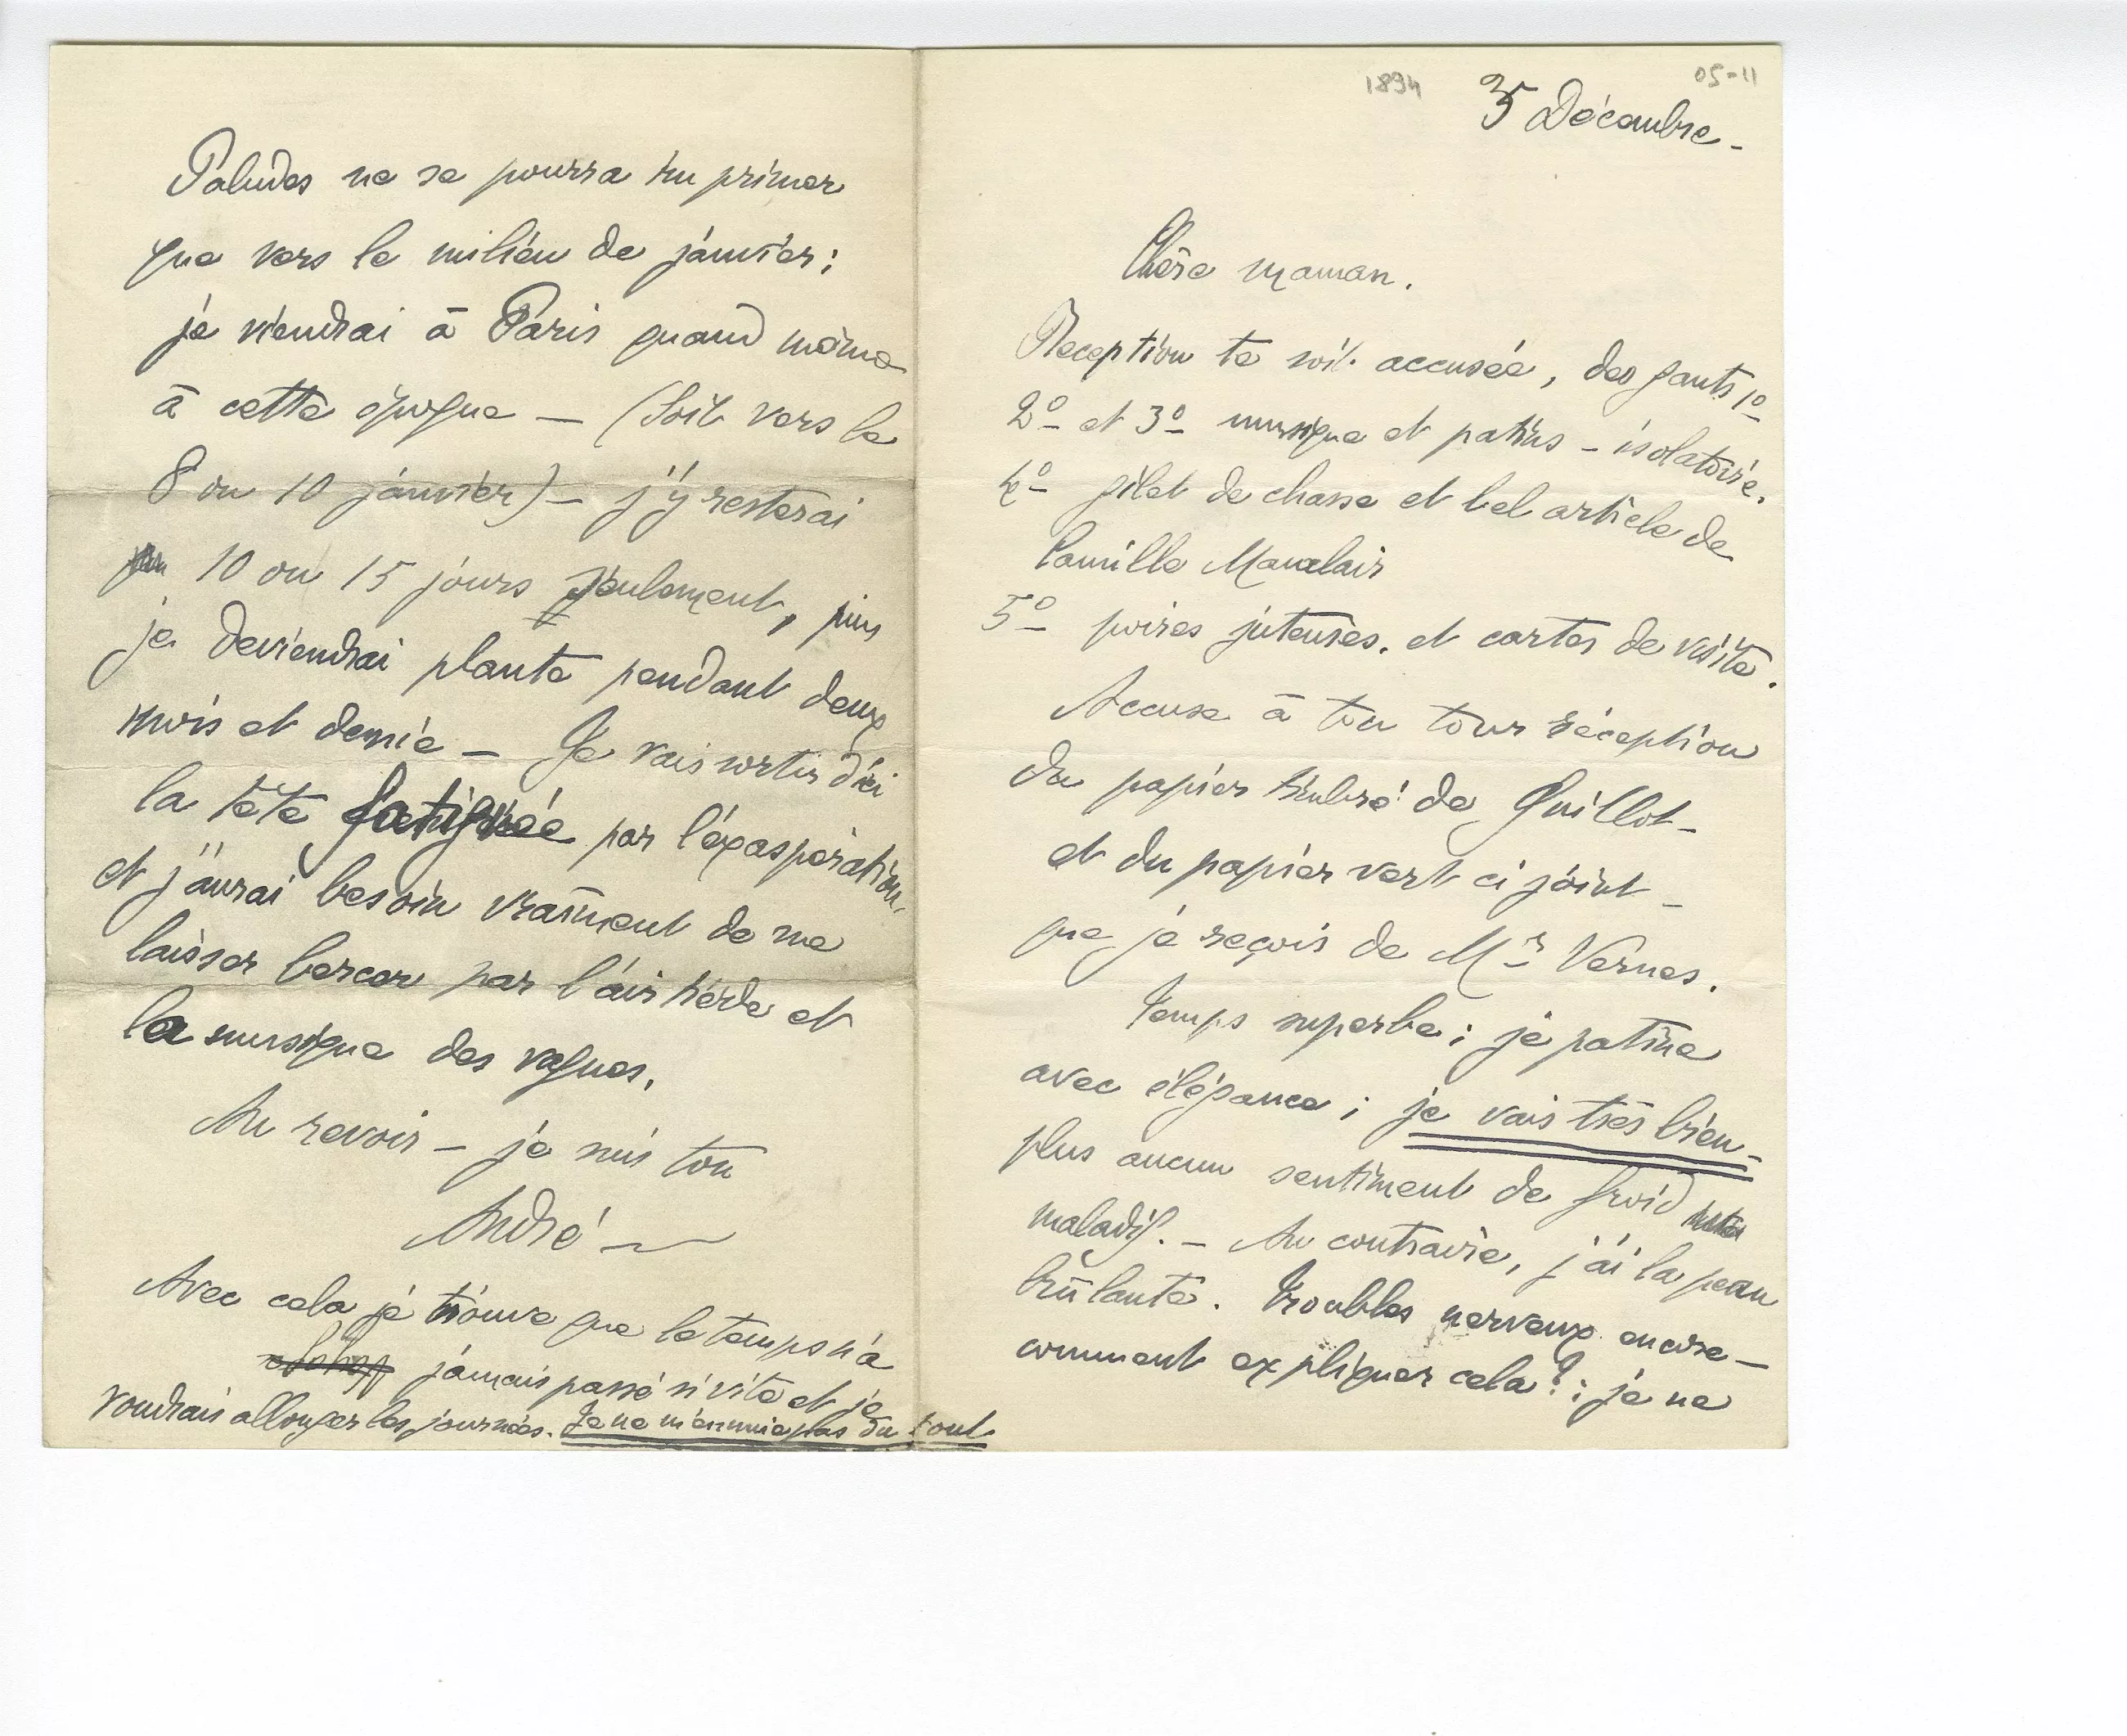 1894
05-11
5 Décembre -
Chère maman.
Reception te soit accusée, des gants 1º
2º et 3º musique et patins - isolatoire.
4º gilet de chasse et bel article de
Camille Mauclair
5º poires juteuses. et cartes de visite.
Accuse à ton tour réception
du papier timbré de Guillot -
et du papier vert ci joint -
que je reçois de Mr Vernes.
Temps superbe ; je patine
avec élégance ; je vais très bien -
plus aucun sentiment de froid
maladif. - Au contraire, j'ai la peau
brûlante. Troubles nerveux encore -
comment expliquer cela? ; je ne
Paludes ne se pourra imprimer
que vers le milieu de janvier ;
je viendrai à Paris quand même
à cette époque - (soit vers le
8 ou 10 janvier) - j'y resterai
10 ou 15 jours seulement, puis
je deviendrai plante pendant deux
mois et demie - Je vais sortir d'ici
la tête fatiguée par l'éxaspération,
et j'aurai besoin vraîment de me
laisser bercer par l'air tiède et
la musique des vagues.
Au revoir - je suis ton
André
Avec cela je trouve que le temps n'a
jamais passé si vite et je
voudrais allonger les journées. Je ne m'ennuie pas du tout